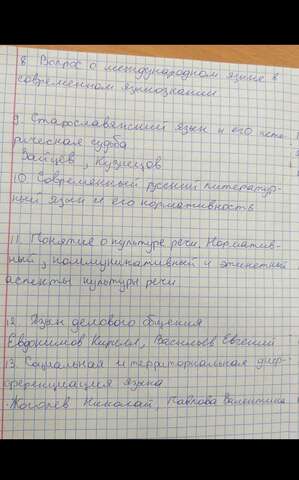 8 Вопрос о международном языке в
современном языкознании
9 Старославянский язык и его исто-
рическая судьба
Зайцев, Кузнецов
10 Современный русский литератур-
ный язык и его нормативность
11. Понятие о культуре речи. Норматив-
ный, коммуникативный и этический
аспекты культуры речи
12 Язык делового общения
Евдокимов Кирилл, Васильев Евгений
13 Социальная и территориальная диф-
ференциация языка
Николай, Павлова Валентина